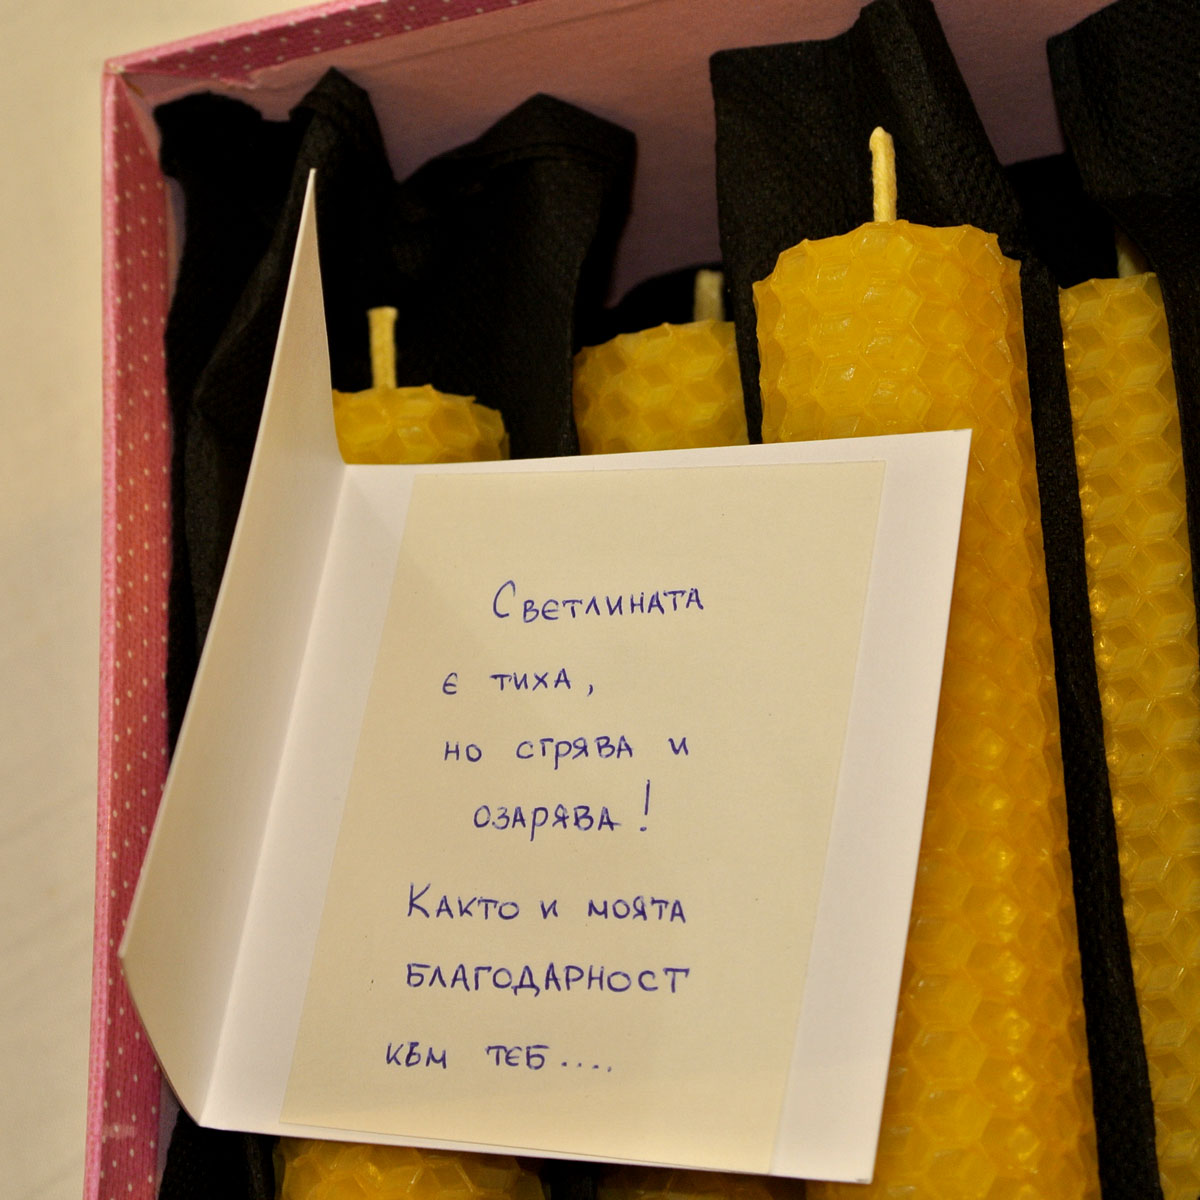 Светлината
е тиха,
но сгрява и
озарява!
Както и моята
благодарност
към теб....